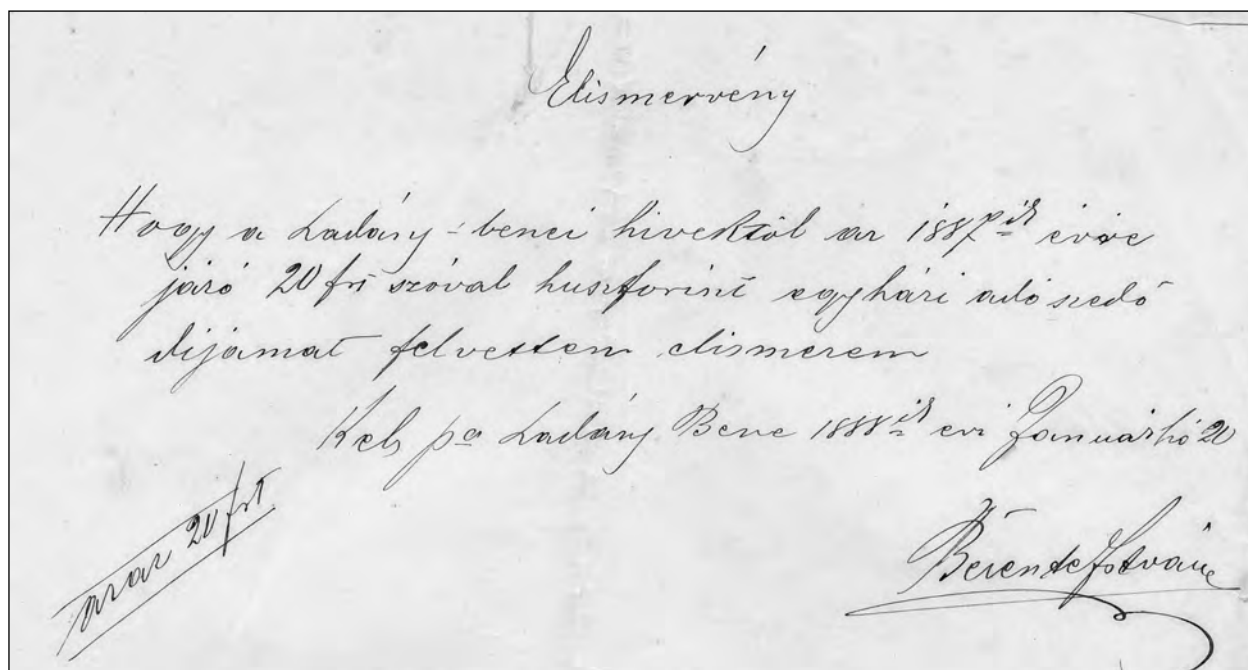 Elismervény
Hogy a Ladány-benei hivektöl az 1887pik évre
járó 20 frt szóval huszforint egyházi adószedö
díjamat felvettem elismerem
Kelt pa Ladány Bene 1888ik évi Januárhó 20
azaz 20 frt
Bérente István